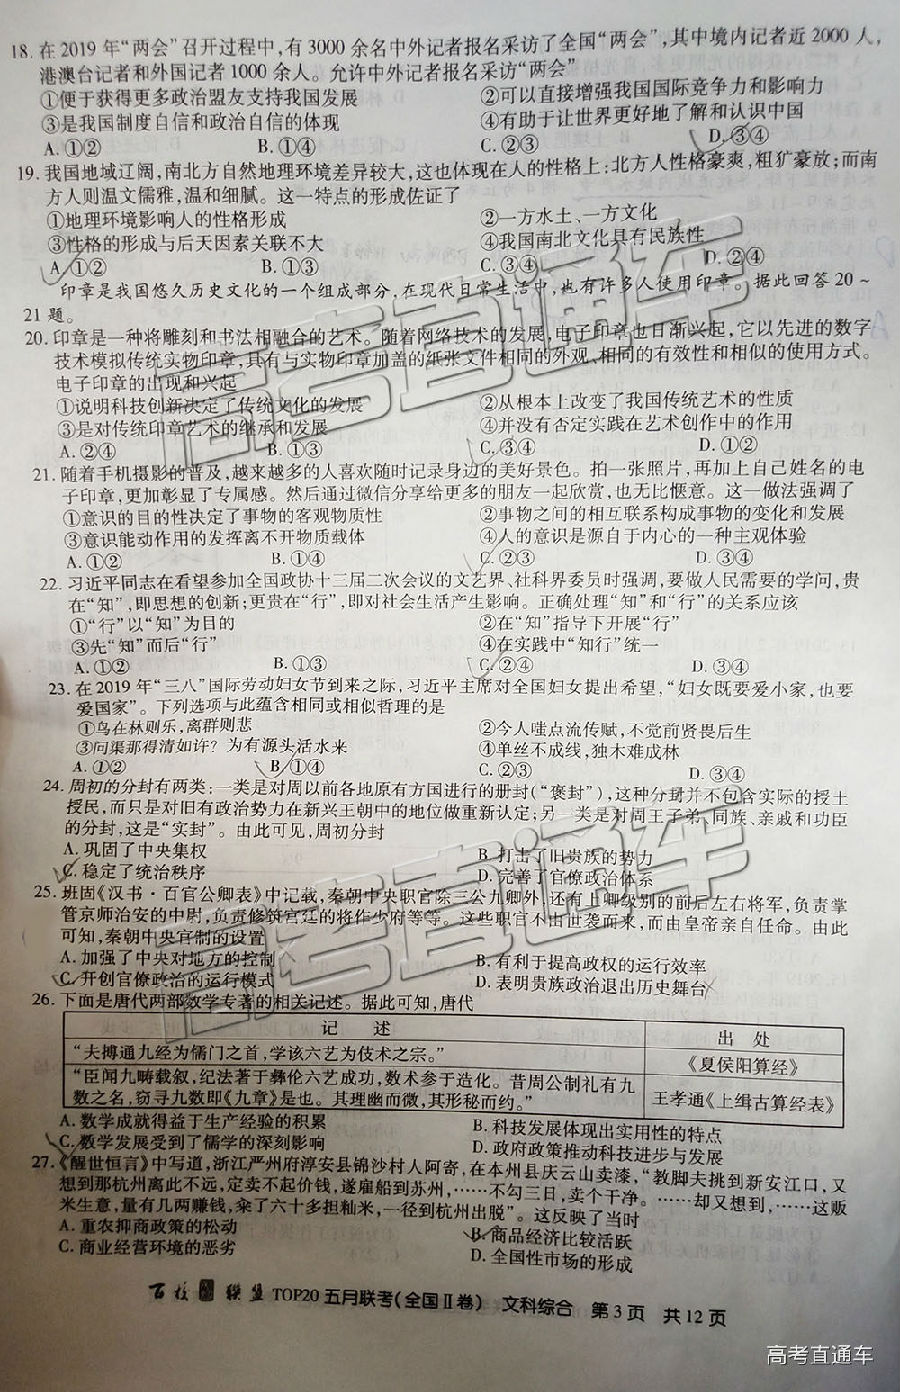 18. 在 2019 年“两会”召开过程中,有 3000 余名中外记者报名采访了全国“两会”,其中境内记者近 2000 人,
港澳台记者和外国记者 1000 余人。允许中外记者报名采访“两会”
①便于获得更多政治盟友支持我国发展 ②可以直接增强我国国际竞争力和影响力
③是我国制度自信和政治自信的体现 ④有助于让世界更好地了解和认识中国
A. ①② B. ①④ C. ②③ D. ③④
19. 我国地域辽阔,南北方自然地理环境差异较大,这也体现在人的性格上:北方人性格豪爽,粗犷豪放;而南
方人则温文儒雅,温和细腻。这一特点的形成佐证了
①地理环境影响人的性格形成 ②一方水土、一方文化
③性格的形成与后天因素关联不大 ④我国南北文化具有民族性
A. ①② B. ①③ C. ③④ D. ②④
印章是我国悠久历史文化的一个组成部分,在现代日常生活中,也有许多人使用印章。据此回答 20~
21 题。
20. 印章是一种将雕刻和书法相融合的艺术。随着网络技术的发展,电子印章也日渐兴起,它以先进的数字
技术模拟传统实物印章,具有与实物印章加盖的纸张文件相同的外观、相同的有效性和相似的使用方式。
电子印章的出现和兴起
①说明科技创新决定了传统文化的发展 ②从根本上改变了我国传统艺术的性质
③是对传统印章艺术的继承和发展 ④并没有否定实践在艺术创作中的作用
A. ②④ B. ①③ C. ③④ D. ①②
21. 随着手机摄影的普及,越来越多的人喜欢随时记录身边的美好景色。拍一张照片,再加上自己姓名的电
子印章,更加彰显了专属感。然后通过微信分享给更多的朋友一起欣赏,也无比惬意。这一做法强调了
①意识的目的性决定了事物的客观物质性 ②事物之间的相互联系构成事物的变化和发展
③意识能动作用的发挥离不开物质载体 ④人的意识是源自于内心的一种主观体验
A. ①② B. ①④ C. ②③ D. ③④
22. 习近平同志在看望参加全国政协十三届二次会议的文艺界、社科界委员时强调,要做人民需要的学问,贵
在“知”,即思想的创新;更贵在“行”,即对社会生活产生影响。正确处理“知”和“行”的关系应该
①“行”以“知”为目的 ②在“知”指导下开展“行”
③先“知”而后“行” ④在实践中“知行”统一
A. ①② B. ①③ C. ②④ D. ③④
23. 在 2019 年“三八”国际劳动妇女节到来之际,习近平主席对全国妇女提出希望,“妇女既要爱小家,也要
爱国家”。下列选项与此蕴含相同或相似哲理的是
①鸟在林则乐,离群则悲 ②今人嗤点流传赋,不觉前贤畏后生
③问渠那得清如许?为有源头活水来 ④单丝不成线,独木难成林
A. ①② B. ①④ C. ②③ D. ③④
24. 周初的分封有两类:一类是对周以前各地原有方国进行的册封(“褒封”),这种分封并不包含实际的授土
授民,而只是对旧有政治势力在新兴王朝中的地位做重新认定;另一类是对周王子弟、同族、亲戚和功臣
的分封,这是“实封”。由此可见,周初分封
A. 巩固了中央集权 B. 打击了旧贵族的势力
C. 稳定了统治秩序 D. 完善了官僚政治体系
25. 班固《汉书·百官公卿表》中记载,秦朝中央职官除三公九卿外,还有上卿级别的前后左右将军,负责掌
管京师治安的中尉,负责修筑宫廷的将作少府等等。这些职官不由世袭而来,而由皇帝亲自任命。由此
可知,秦朝中央官制的设置
A. 加强了中央对地方的控制 B. 有利于提高政权的运行效率
C. 开创官僚政治的运行模式 D. 表明贵族政治退出历史舞台
26. 下面是唐代两部数学专著的相关记述。据此可知,唐代
记 述 出 处
“夫搏通九经为儒门之首,学该六艺为伎术之宗。” 《夏侯阳算经》
“臣闻九畴载叙,纪法著于彝伦六艺成功,数术参于造化。昔周公制礼有九
数之名,窃寻九数即《九章》是也。其理幽而微,其形秘而约。” 王孝通《上缉古算经表》
A. 数学成就得益于生产经验的积累 B. 科技发展体现出实用性的特点
C. 数学发展受到了儒学的深刻影响 D. 政府政策推动科技进步与发展
27. 《醒世恒言》中写道,浙江严州府淳安县锦沙村人阿寄,在本州县庆云山卖漆,“教脚夫挑到新安江口,又
想到那杭州离此不远,定卖不起价钱,遂雇船到苏州,……不勾三日,卖个干净。……却又想到,……这贩
米生意,量有几两赚钱,籴了六十多担籼米,一径到杭州出脱”。这反映了当时
A. 重农抑商政策的松动 B. 商品经济比较活跃
C. 商业经营环境的恶劣 D. 全国性市场的形成
百校联盟 TOP20 五月联考(全国Ⅱ卷) 文科综合 第 3 页 共 12 页
高考直通车
高考直通车
高考直通车